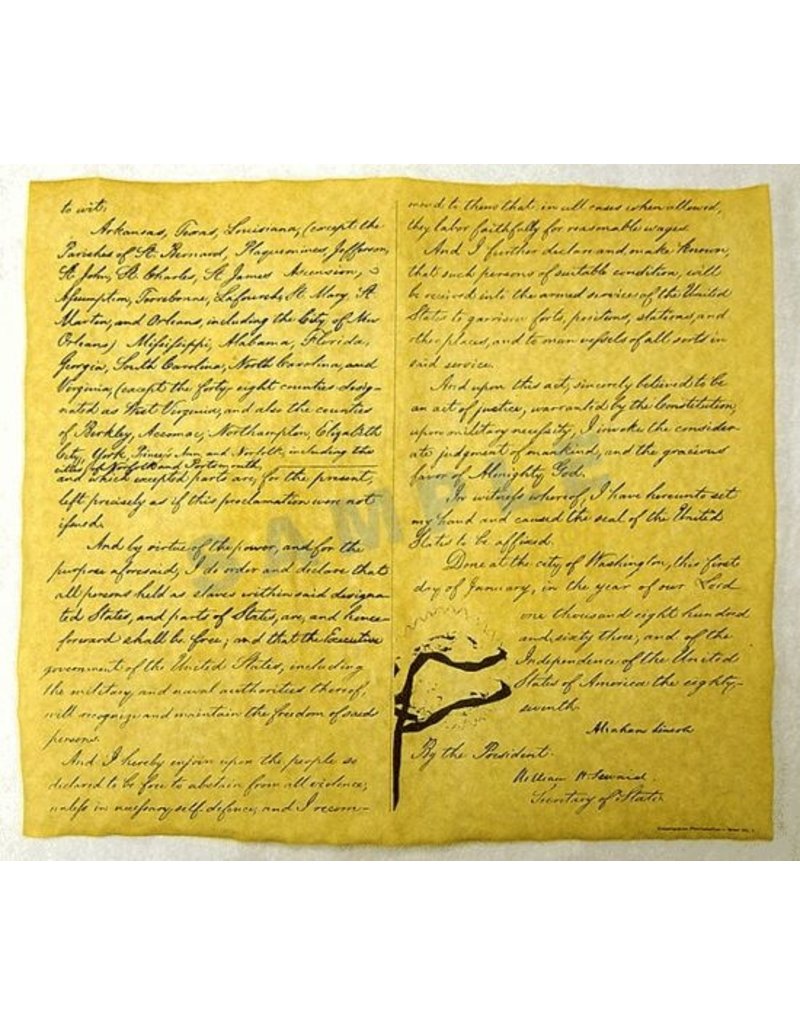 to wit;
Arkansas, Texas, Louisiana, (except the
Parishes of St. Bernard, Plaquemines, Jefferson,
St. John, St. Charles, St. James Ascension,
Assumption, Terrebonne, Lafourche, St. Mary, St.
Martin, and Orleans, including the City of New
Orleans) Mississippi, Alabama, Florida,
Georgia, South Carolina, North Carolina, and
Virginia, (except the forty-eight counties desig-
nated as West Virginia, and also the counties
of Berkley, Accomac, Northampton, Elizabeth
City, York, Princess Ann, and Norfolk, including the
cities of Norfolk and Portsmouth,
and which excepted parts are, for the present,
left precisely as if this proclamation were not
issued.
And by virtue of the power, and for the
purpose aforesaid, I do order and declare that
all persons held as slaves within said designa-
ted States, and parts of States, are, and hence-
forward shall be free; and that the Executive
government of the United States, including
the military and naval authorities thereof,
will recognize and maintain the freedom of said
persons.
And I hereby enjoin upon the people so
declared to be free to abstain from all violence,
unless in necessary self-defence; and I recom-
mend to them that, in all cases when allowed,
they labor faithfully for reasonable wages.
And I further declare and make known,
that such persons of suitable condition, will
be received into the armed service of the United
States to garrison forts, positions, stations, and
other places, and to man vessels of all sorts in
said service.
And upon this act, sincerely believed to be
an act of justice, warranted by the Constitution,
upon military necessity, I invoke the consider-
ate judgment of mankind, and the gracious
favor of Almighty God.
In witness whereof, I have hereunto set
my hand and caused the seal of the United
States to be affixed.
Done at the city of Washington, this first
day of January, in the year of our Lord
one thousand eight hundred
and sixty three, and of the
Independence of the United
States of America the eighty-
seventh.
Abraham Lincoln
By the President:
William H. Seward,
Secretary of State